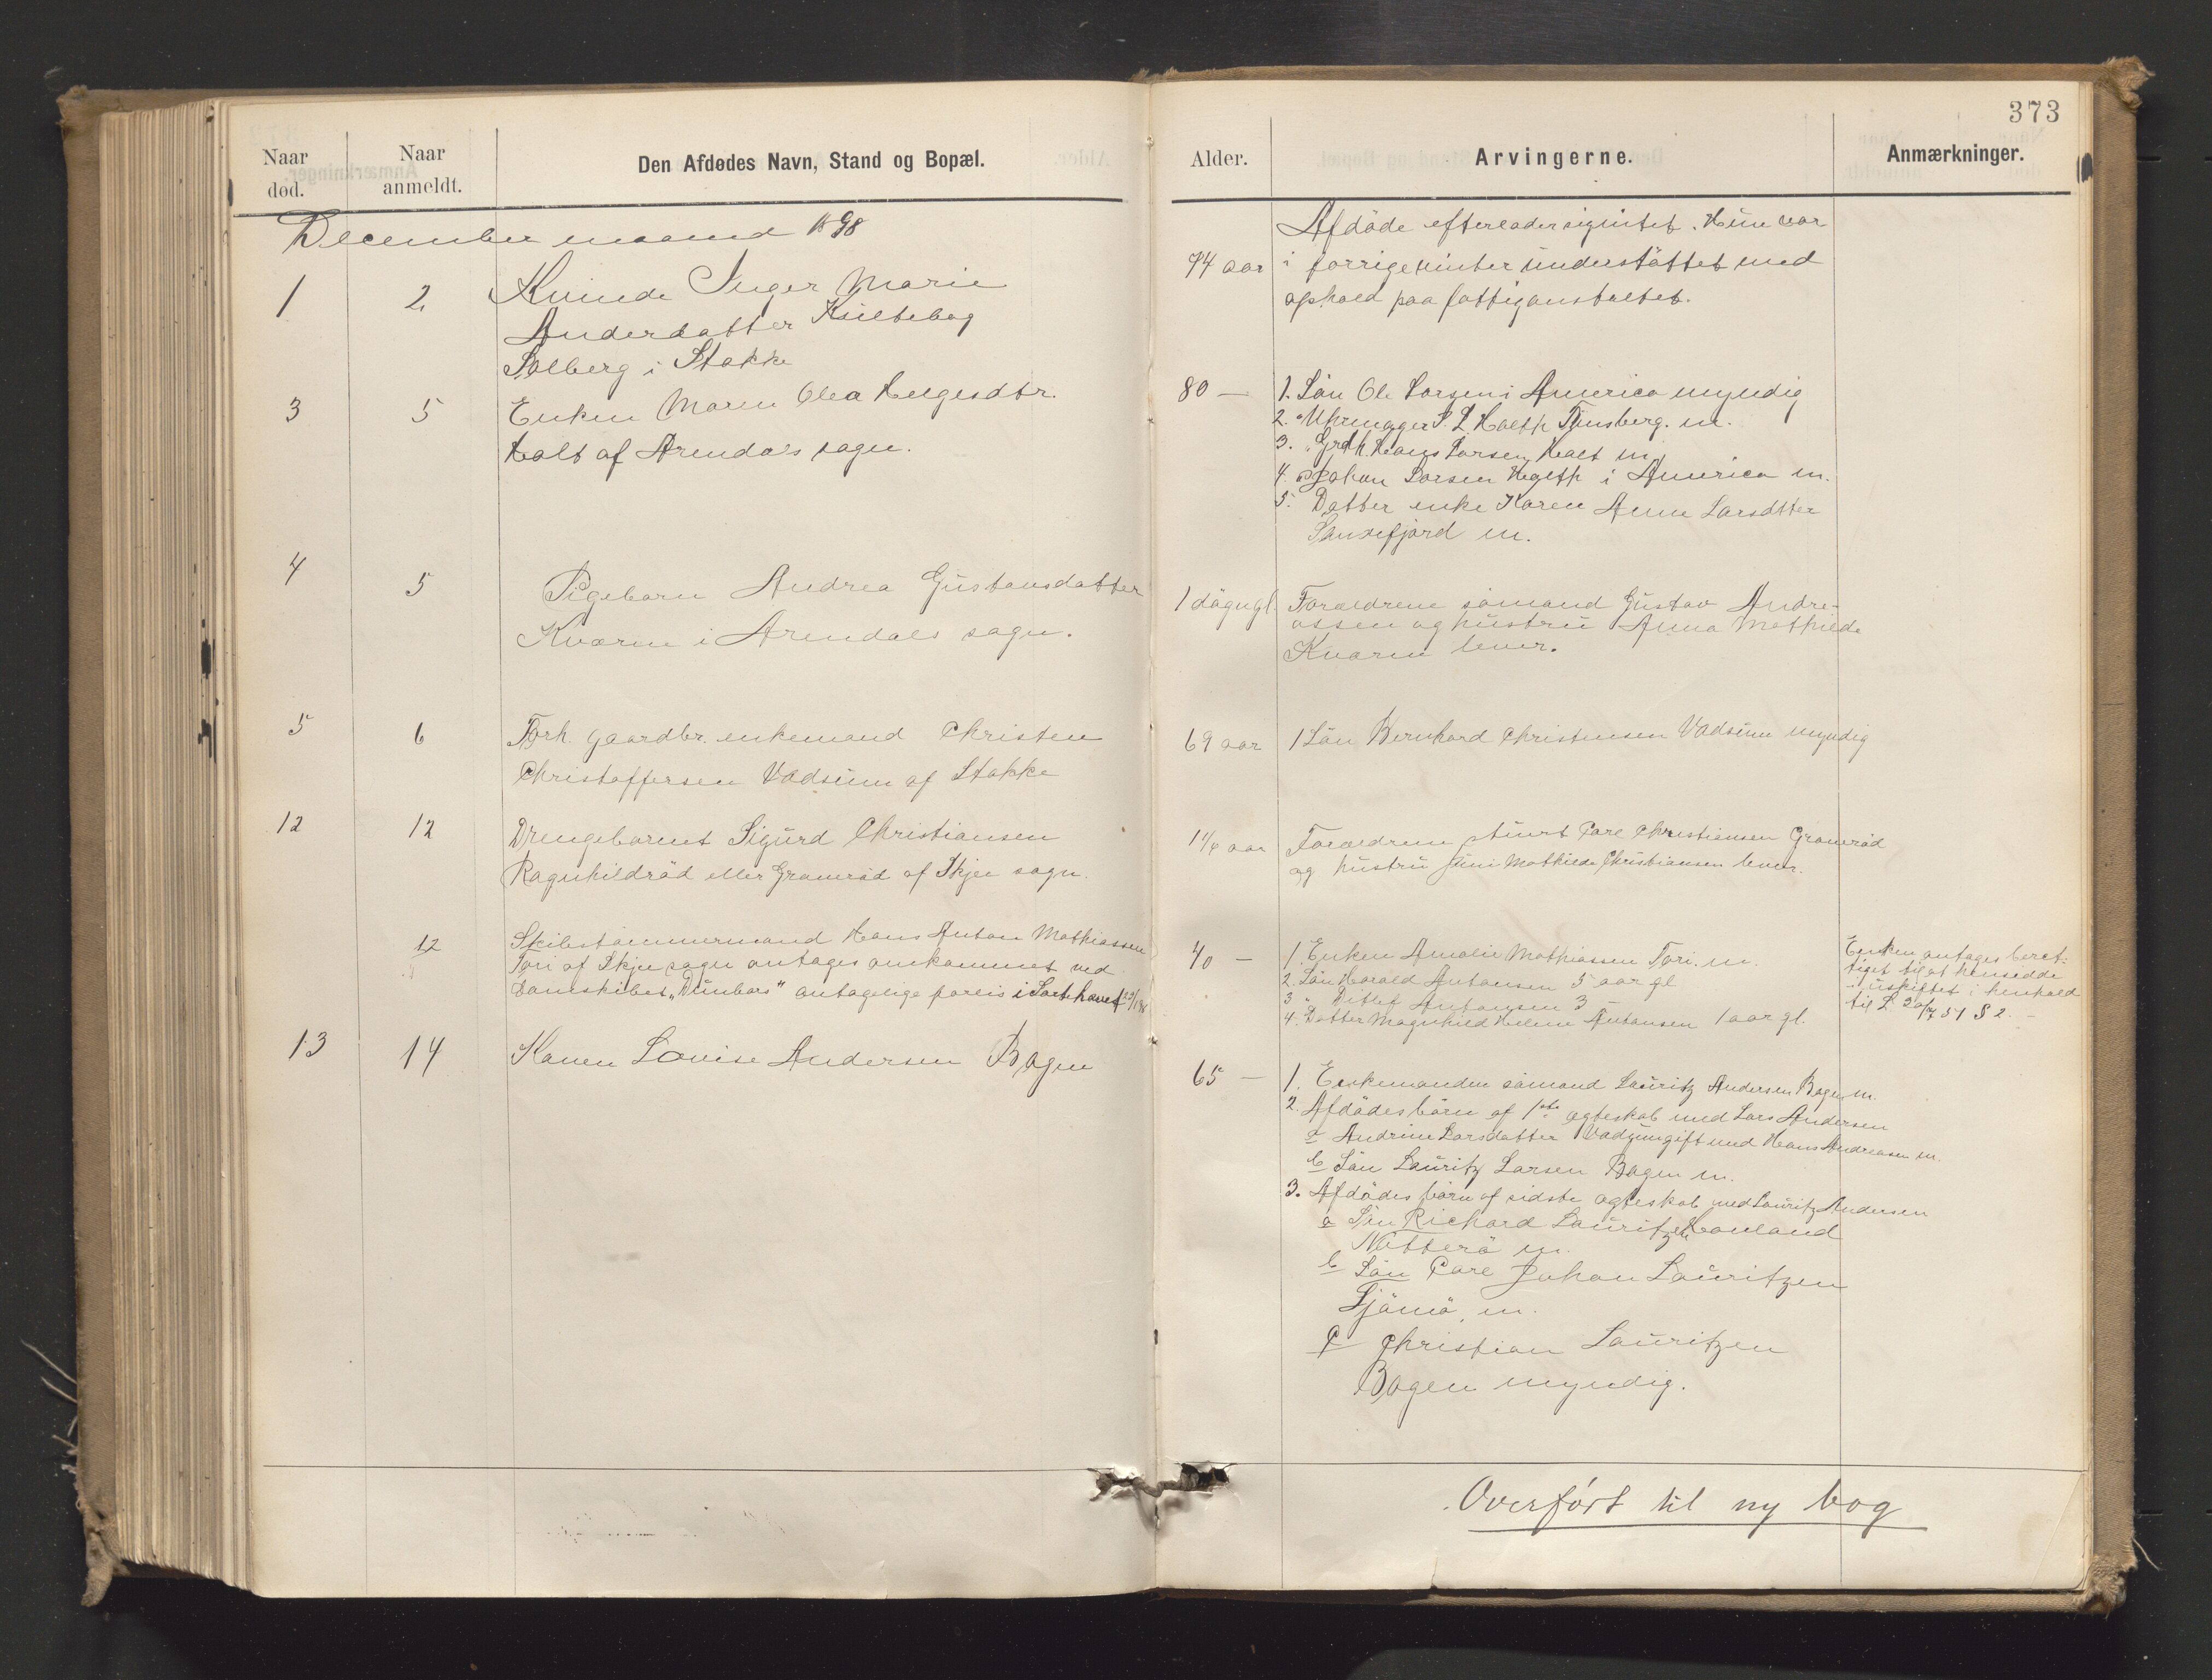 373
Naar død.
Naar anmeldt.
Den Afdødes Navn, Stand og Bopæl.
Alder.
Arvingerne.
Anmærkninger.
December maaned 1898
1
2
Kvinde Inger Marie
Andersdatter
Solberg i Stokke
74 aar
Afdøde efterlader sig intet. Hun var
i forrige vinter understøttet med
ophold paa fattiganstaltet.
3
5
Enken Maren Olea Helgesdtr.
Halt af Arendals sogn.
80 —
1. Søn Ole Larsen i America myndig
2. " Uhrmager S. L. Holth Tønsberg. m.
3. " Grdb. Hans Larsen Halt m.
4. " Johan Larsen Hølth i America m.
5. Datter enke Karen Anne Larsdtter
Sandefjord m.
4
5
Pigebarn Andrea Gustavsdatter
Kværne i Arendals sogn.
1 døgn gl.
Forældrene sømand Gustav Andre-
assen og hustru Anna Mathilde
Kværne lever.
5
6
Forh. gaardbr. enkemand Christen
Christoffersen Vadsum af Stokke
69 aar
1 Søn Bernhard Christensen Vadsum myndig
12
12
Drengebarnet Sigurd Christiansen
Ragnhildrød eller Gramrød af Skjee sogn.
1 1/4 aar
Forældrene Carl Christiansen Gramrød
og hustru Mathilde Christiansen lever.
12
Skibstømmermand Hans Anton Mathiassen
Tori af Skjee sogn antages omkommet ved
Damskibet "Dunbars" antagelige forlis i Sortehavet
40 —
1. Enken Amalie Mathiassen Tori. m.
2. Søn Harald Antonsen 5 aar gl
3 " Ditlef Antonsen 3 —
4. Datter Magnhild Helene Antonsen 1 aar gl.
Enken antages beret-
tiget til at hensidde
i uskiftet i henhold
til L 30/7 51 § 2. —
13
14
Konen Lovise Andersen Bogen
65 —
1. Enkemanden sømand Lauritz Andersen Bogen m.
2. Afdødes børn af 1ste ægteskab med Lars Andersen
a Andrine Larsdatter Vadsum gift med Hans Andreasen m.
b Søn Lauritz Larsen Bogen m.
3. Afdødes børn af sidste ægteskab med Lauritz Andersen
a Søn Richard Lauritzen Havland
Nøtterø m.
b Søn Carl Johan Lauritzen
Tjømø, m.
c Christian Lauritzen
Bogen myndig.
Overført til ny bog